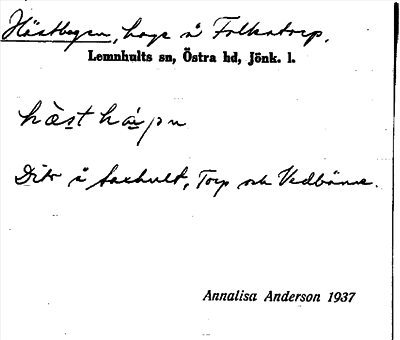 Hästhagen, hage å Folkatorp.
Lemnhults sn, Östra hd, Jönk. l.
hä̀st há̱gən
Dito å Saxhult, Torp och Vedbänne.
Annalisa Anderson 1937